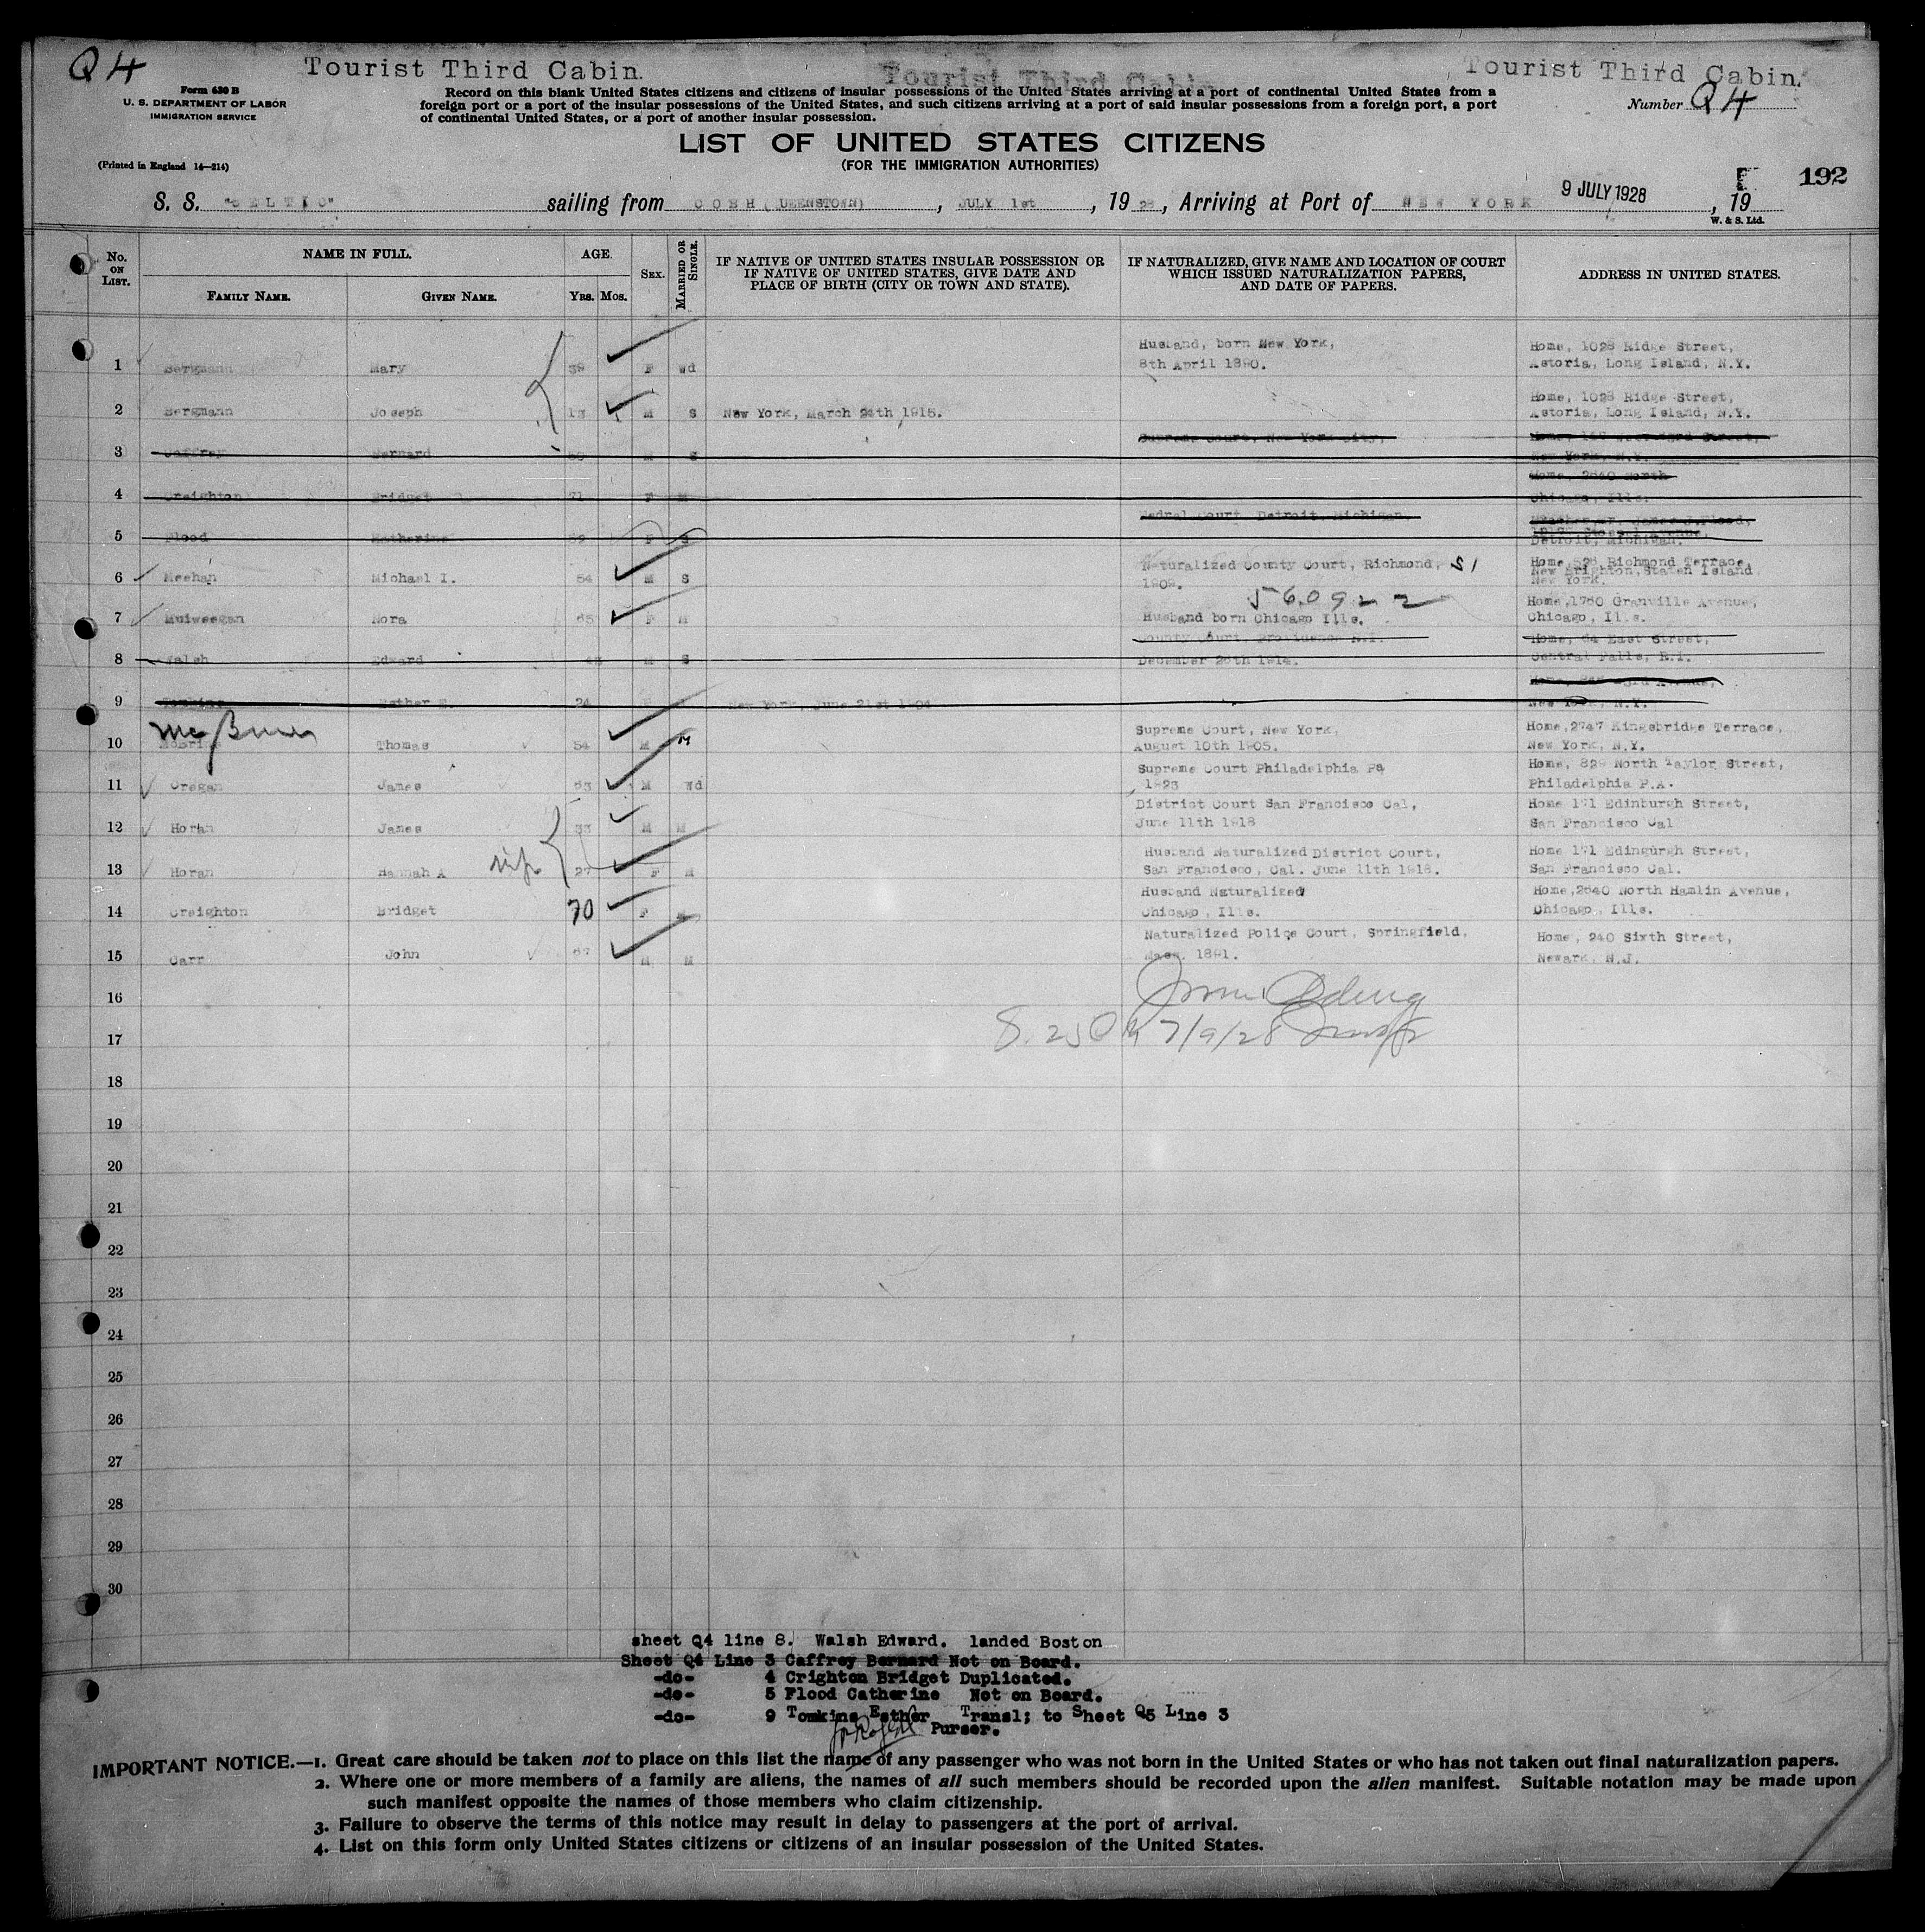 Q4
Tourist Third Cabin.
Tourist Third Cabin
Tourist Third Cabin.
Form 630 B
U. S. DEPARTMENT OF LABOR
IMMIGRATION SERVICE
Record on this blank United States citizens and citizens of insular possessions of the United States arriving at a port of continental United States from a
foreign port or a port of the insular possessions of the United States, and such citizens arriving at a port of said insular possessions from a foreign port, a port
of continental United States, or a port of another insular possession.
Number Q4
LIST OF UNITED STATES CITIZENS
(FOR THE IMMIGRATION AUTHORITIES)
(Printed in England 14—214)
192
S. S. "CELTIC" sailing from COBH (QUEENSTOWN), JULY 1st, 1928, Arriving at Port of NEW YORK 9 JULY 1928, 19
W. & S. Ltd.
No. ON LIST.
NAME IN FULL.
FAMILY NAME. GIVEN NAME.
AGE.
YRS. MOS.
SEX.
MARRIED OR SINGLE.
IF NATIVE OF UNITED STATES INSULAR POSSESSION OR
IF NATIVE OF UNITED STATES, GIVE DATE AND
PLACE OF BIRTH (CITY OR TOWN AND STATE).
IF NATURALIZED, GIVE NAME AND LOCATION OF COURT
WHICH ISSUED NATURALIZATION PAPERS,
AND DATE OF PAPERS.
ADDRESS IN UNITED STATES.
Husband, born New York, Home, 1028 Ridge Street,
1 Bergmann Mary 39 F Wd 8th April 1890. Astoria, Long Island, N.Y.
Home, 1028 Ridge Street,
2 Bergmann Joseph 13 M S New York, March 24th 1915. Astoria, Long Island, N.Y.
Supreme Court, New York City,
3 Caffrey Bernard M S New York, N.Y.
Home, 2640 North
4 Creighton Bridget 71 F M Chicago, Ills.
Fedral Court, Detroit, Michigan.
5 Flood Katherine F S Detroit, Michigan.
Naturalized County Court, Richmond, S1 Home, 528 Richmond Terrace,
New Brighton, Staten Island
6 Meehan Michael I. 54 M S 1909. New York.
560922 Home, 1760 Granville Avenue,
7 Muiweegan Nora F M Husband born Chicago Ills. Chicago, Ills.
County Court, Providence R.I. Home, 64 East Street,
8 Walsh Edward M S December 26th 1914. Central Falls, R.I.
9 Tomkins Esther E. 24 F New York, June 21st 1904 New York, N.Y.
McBrien
Supreme Court, New York, Home, 2747 Kingsbridge Terrace,
10 Thomas 54 M M August 10th 1905. New York, N.Y.
Supreme Court Philadelphia Pa Home, 829 North Taylor Street,
11 Cregan James 53 M Wd 1923 Philadelphia P.A.
District Court San Francisco Cal, Home 171 Edinburgh Street,
12 Horan James 33 M M June 11th 1918 San Francisco Cal
Husband Naturalized District Court, Home 171 Edingurgh Street,
13 Horan Hannah A wife 27 F M San Francisco, Cal. June 11th 1918. San Francisco Cal.
Husband Naturalized Home, 2640 North Hamlin Avenue,
14 Creighton Bridget 70 F Chicago, Ills. Chicago, Ills.
Naturalized Police Court, Springfield, Home, 240 Sixth Street,
15 Carr John 67 M M Mass. 1891. Newark, N.J.
16
17 7/9/28
18
19
20
21
22
23
24
25
26
27
28
29
30
sheet Q4 line 8. Walsh Edward. landed Boston
Sheet Q4 Line 3 Caffrey Bernard Not on Board.
-do- 4 Crighton Bridget Duplicated.
-do- 5 Flood Catherine Not on Board.
-do- 9 Tomkins Esther Transl; to Sheet Q5 Line 3
Purser.
IMPORTANT NOTICE.—1. Great care should be taken not to place on this list the name of any passenger who was not born in the United States or who has not taken out final naturalization papers.
2. Where one or more members of a family are aliens, the names of all such members should be recorded upon the alien manifest. Suitable notation may be made upon
such manifest opposite the names of those members who claim citizenship.
3. Failure to observe the terms of this notice may result in delay to passengers at the port of arrival.
4. List on this form only United States citizens or citizens of an insular possession of the United States.